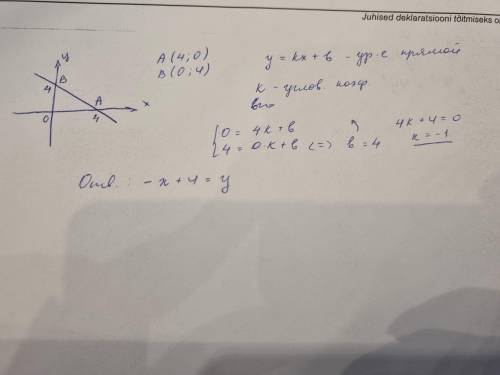 Juhised deklaratsiooni täitmiseks o
y
B
4
A
x
0
4
A(4;0)
B(0;4)
y = kx + b - ур-е прямой
k - углов. коэф.
{ 0 = 4k + b
4 = 0·k + b <=> b = 4
4k + 4 = 0
k = -1
Отв.: -x + 4 = y